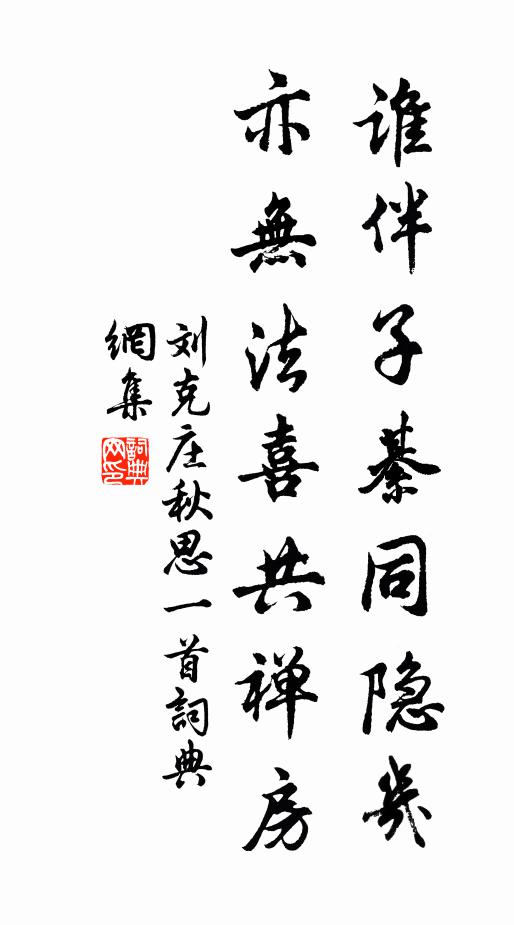 谁伴子綦同隐几
亦無法喜共禅房
刘克庄秋思一首詞典
網集
詞典網印